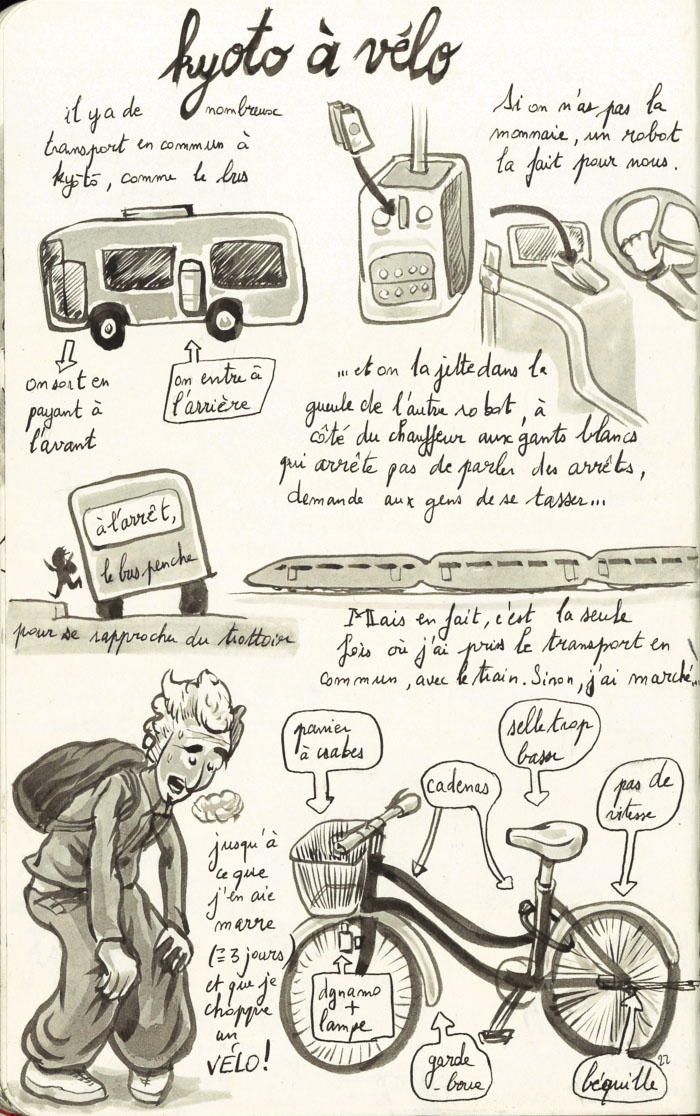 kyoto à vélo
il y a de nombreux
transport en commun à
kyōtō, comme le bus
Si on n'as pas la
monnaie, un robot
la fait pour nous.
on sort en
payant à
l'avant
on entre à
l'arrière
...et on la jette dans la
gueule de l'autre robot, à
côté du chauffeur aux gants blancs
qui arrête pas de parler des arrêts,
demande aux gens de se tasser...
à l'arrêt,
le bus penche
pour se rapprocher du trottoir
Mais en fait, c'est la seule
fois où j'ai pris le transport en
commun, avec le train. Sinon, j'ai marché...
jusqu'à
ce que
j'en aie
marre
(≃ 3 jours)
et que je
choppe
un
VÉLO!
panier
à crabes
cadenas
selle trop
basse
pas de
vitesse
dynamo
+
lampe
garde
-boue
béquille
22